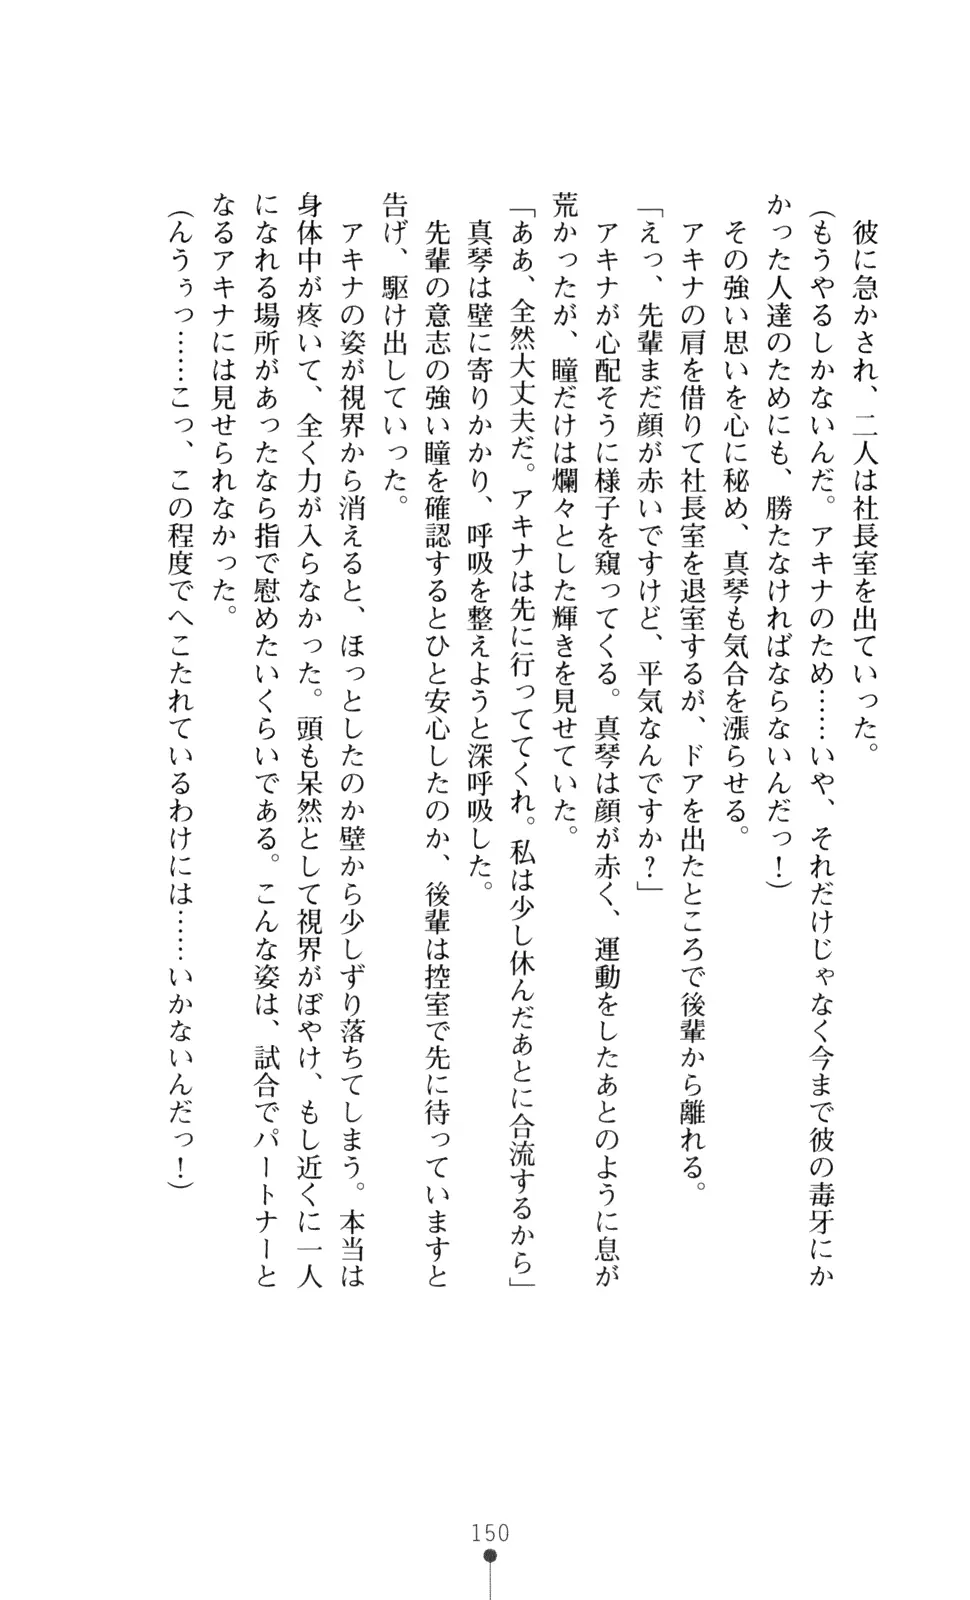 彼に急かされ、二人は社長室を出ていった。
（もうやるしかないんだ。アキナのため……いや、それだけじゃなく今まで彼の毒牙にか
かった人達のためにも、勝たなければならないんだっ！）
その強い思いを心に秘め、真琴も気合を漲らせる。
アキナの肩を借りて社長室を退室するが、ドアを出たところで後輩から離れる。
「えっ、先輩まだ顔が赤いですけど、平気なんですか？」
アキナが心配そうに様子を窺ってくる。真琴は顔が赤く、運動をしたあとのように息が
荒かったが、瞳だけは爛々とした輝きを見せていた。
「ああ、全然大丈夫だ。アキナは先に行っててくれ。私は少し休んだあとに合流するから」
真琴は壁に寄りかかり、呼吸を整えようと深呼吸した。
先輩の意志の強い瞳を確認するとひと安心したのか、後輩は控室で先に待っていますと
告げ、駆け出していった。
アキナの姿が視界から消えると、ほっとしたのか壁から少しずり落ちてしまう。本当は
身体中が疼いて、全く力が入らなかった。頭も呆然として視界がぼやけ、もし近くに一人
になれる場所があったなら指で慰めたいくらいである。こんな姿は、試合でパートナーと
なるアキナには見せられなかった。
（んうぅっ……こっ、この程度でへこたれているわけには……いかないんだっ！）
150